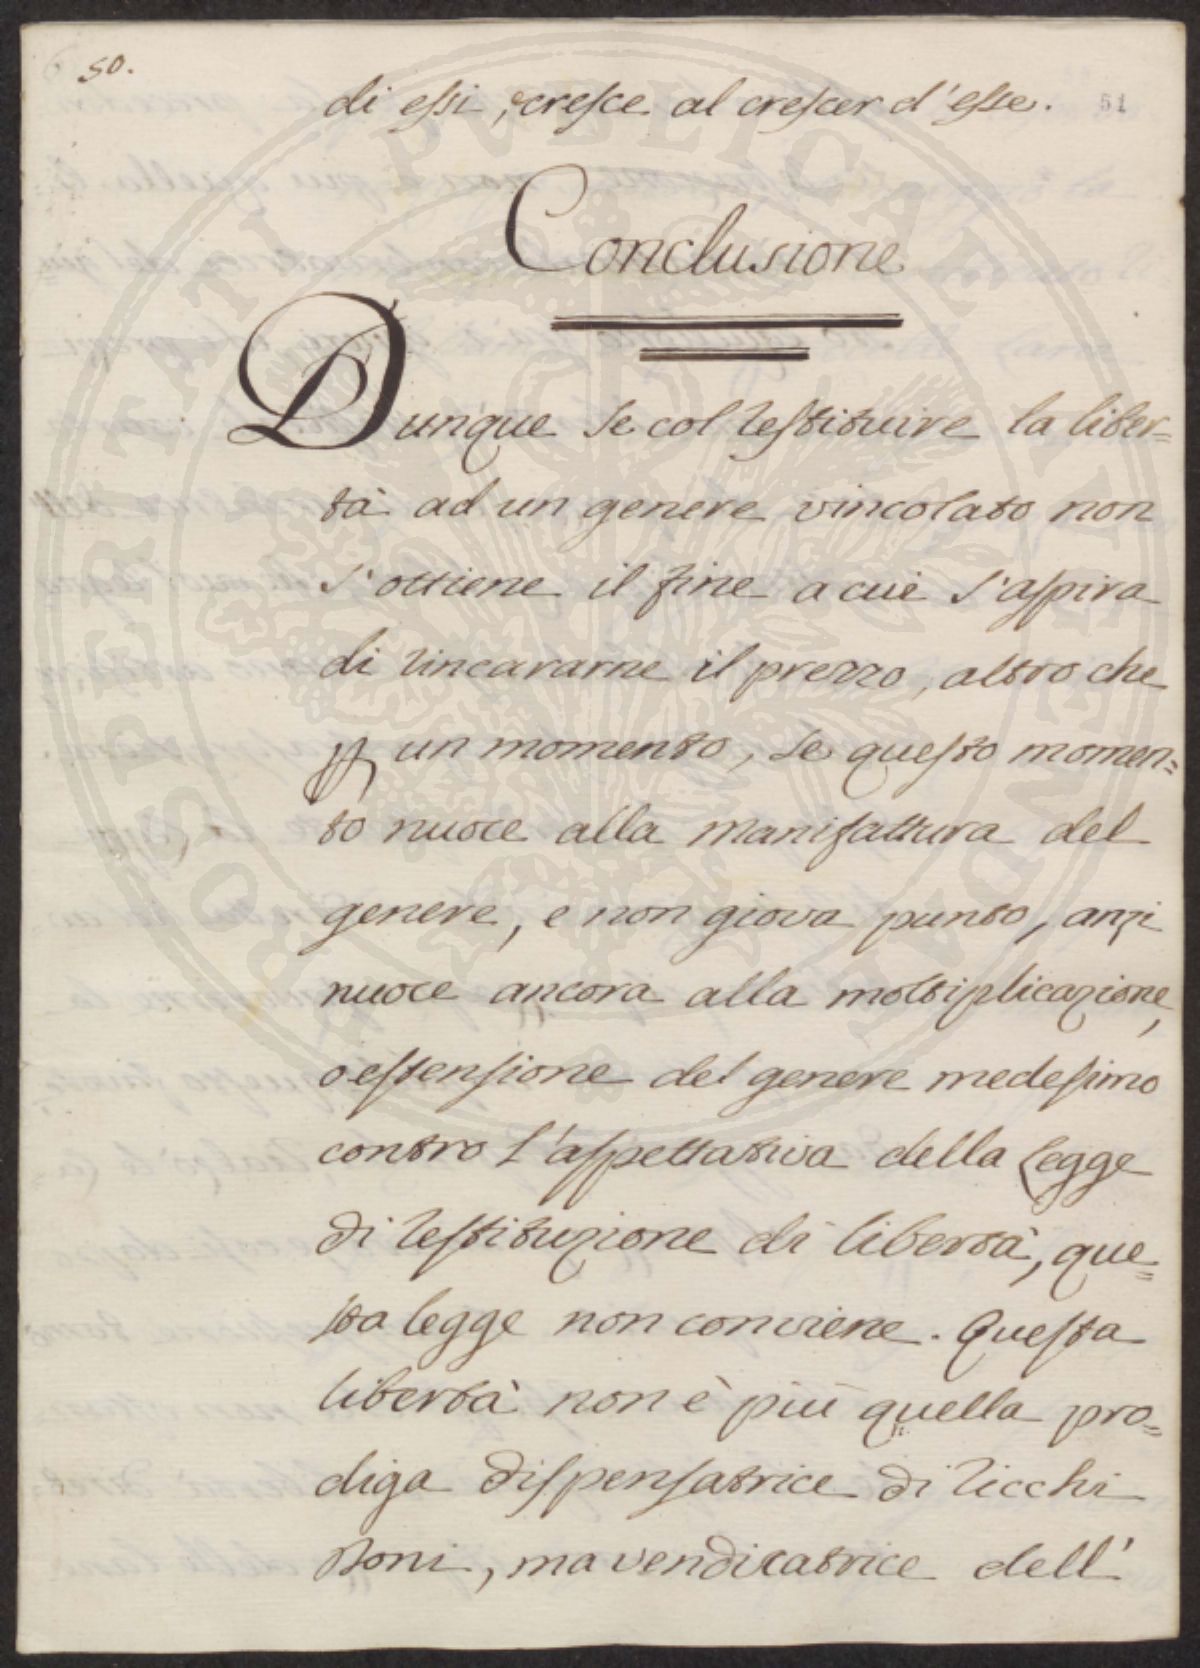 50.
di essi, e cresce al crescer d'esse. 51
Conclusione
Dunque se col restituire la liber=
tà ad un genere vincolato non
s'ottiene il fine a cui s'aspira
di rincararne il prezzo, altro che
p un momento, se questo momen=
to nuoce alla manifattura del
genere, e non giova punto, anzi
nuoce ancora alla moltiplicazione,
o estensione del genere medesimo
contro l'aspettativa della Legge
di restituzione di libertà, que=
sta legge non conviene. Questa
libertà non è più quella pro=
diga dispensatrice di ricchi
Doni, ma vendicatrice dell'
PROSPERITATI PUBLICAE AUGENDAE